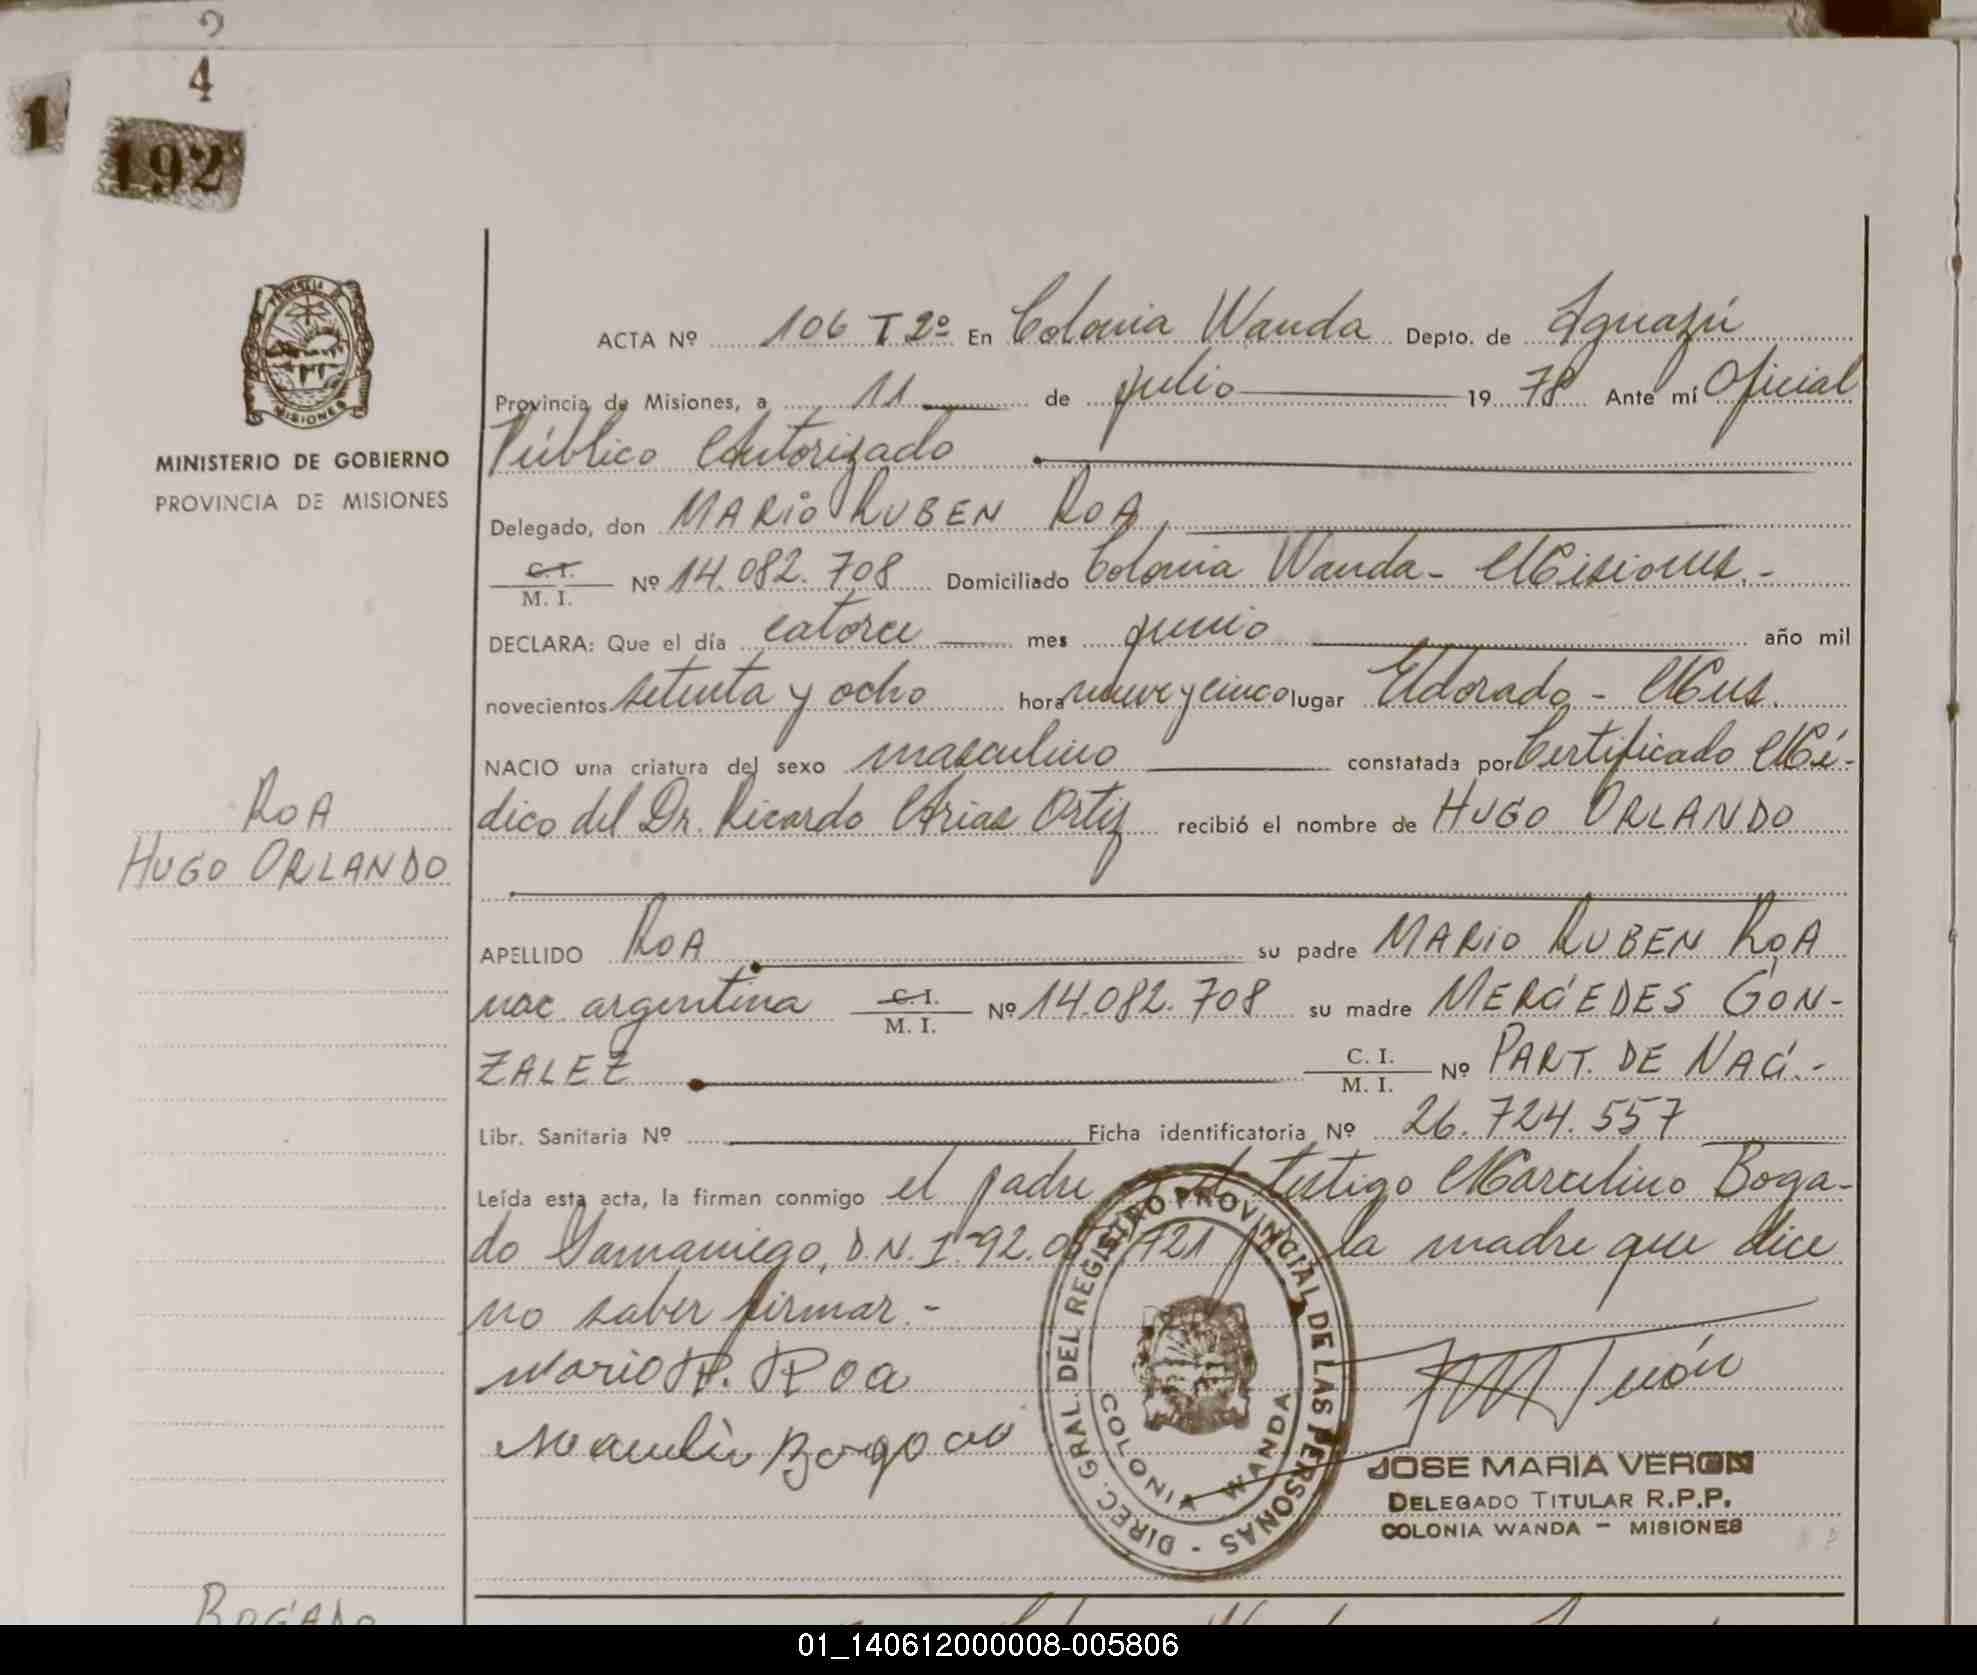 2
4
1
192
PROVINCIA DE
MISIONES
MINISTERIO DE GOBIERNO
PROVINCIA DE MISIONES
ROA
HUGO ORLANDO
ACTA Nº 106 T 2º En Colonia Wanda Depto. de Iguazú
Provincia de Misiones, a 11 de julio 19 78 Ante mí Oficial
Público Autorizado
Delegado, don MARIO RUBEN ROA
C.I. / M. I. Nº 14.082.708 Domiciliado Colonia Wanda - Misiones.-
DECLARA: Que el día catorce mes junio año mil
novecientos setenta y ocho hora nueve y cinco lugar Eldorado - Mnes.
NACIO una criatura del sexo masculino constatada por Certificado Mé-
dico del Dr. Ricardo Arias Ortiz recibió el nombre de HUGO ORLANDO
APELLIDO ROA su padre MARIO RUBEN ROA
nac. argentina C.I. / M. I. Nº 14.082.708 su madre MERCEDES GON-
ZALEZ C. I. / M. I. Nº PART. DE NAC.-
Libr. Sanitaria Nº Ficha identificatoria Nº 26.724.557
Leída esta acta, la firman conmigo el padre y el testigo Marcelino Boga-
do Samaniego, D.N.I. 92.0 721 p/ la madre que dice
no saber firmar.-
Mario R. Roa
Bogado
DIREC. GRAL. DEL REGISTRO PROVINCIAL DE LAS PERSONAS -
COLONIA WANDA
JM Verón
JOSE MARIA VERON
DELEGADO TITULAR R.P.P.
COLONIA WANDA - MISIONES
BOGADO
01_140612000008-005806